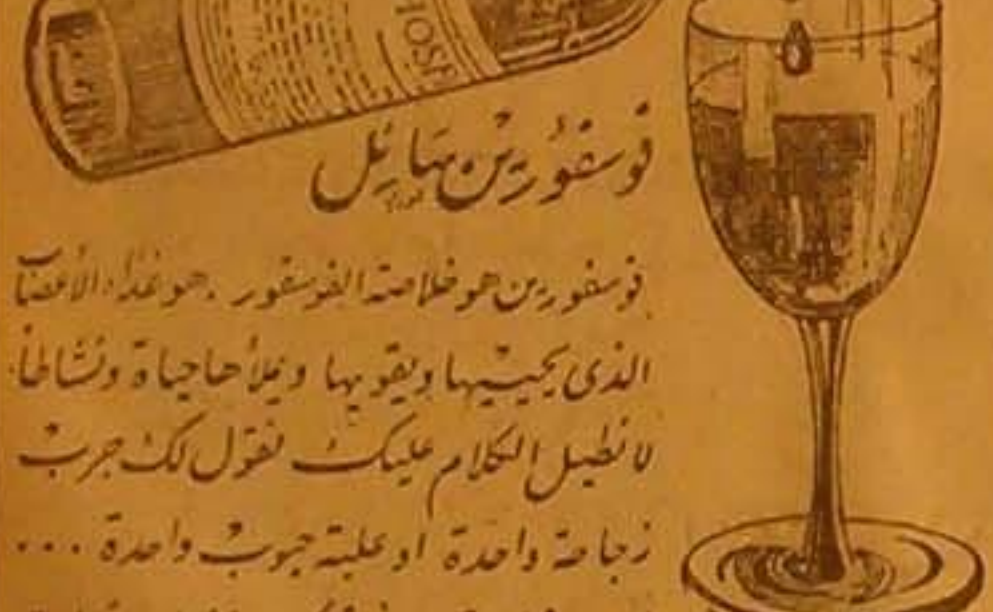 HOSF
فوسفورين هائل
فوسفورين هو خلاصة الفوسفور . هو غذاء الأعصاب
الذى يحييها ويقويها ويملأها حياة ونشاطا
لا نطيل الكلام عليك نقول لك جرب
زجاجة واحدة او علبة حبوب واحدة ...